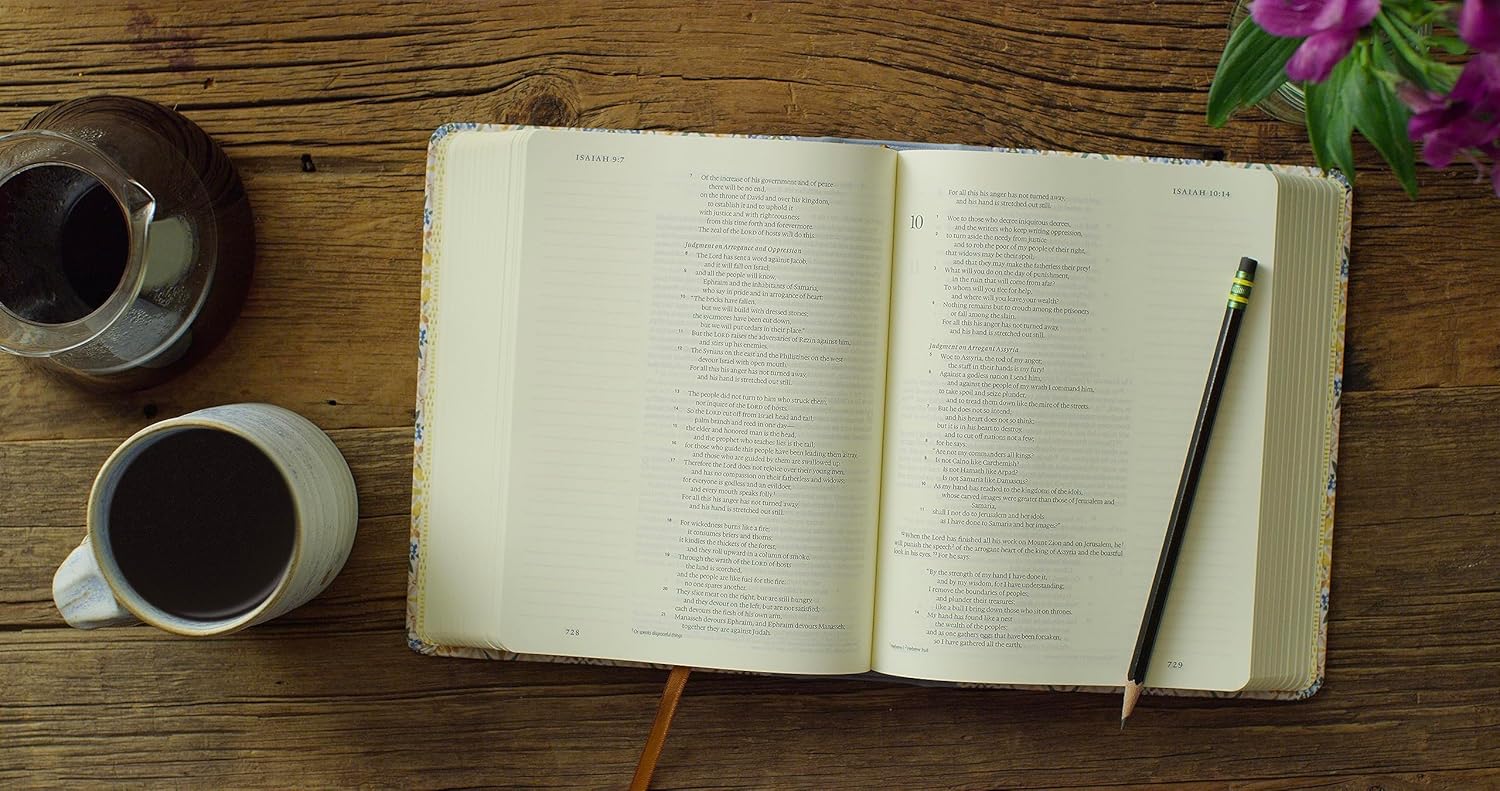 ISAIAH 9:7
7 Of the increase of his government and of peace
there will be no end,
on the throne of David and over his kingdom,
to establish it and to uphold it
with justice and with righteousness
from this time forth and forevermore.
The zeal of the LORD of hosts will do this.
Judgment on Arrogance and Oppression
8 The Lord has sent a word against Jacob,
and it will fall on Israel;
9 and all the people will know,
Ephraim and the inhabitants of Samaria,
who say in pride and in arrogance of heart:
10 "The bricks have fallen,
but we will build with dressed stones;
the sycamores have been cut down,
but we will put cedars in their place."
11 But the LORD raises the adversaries of Rezin against him,
and stirs up his enemies.
12 The Syrians on the east and the Philistines on the west
devour Israel with open mouth.
For all this his anger has not turned away,
and his hand is stretched out still.
13 The people did not turn to him who struck them,
nor inquire of the LORD of hosts.
14 So the LORD cut off from Israel head and tail,
palm branch and reed in one day—
15 the elder and honored man is the head,
and the prophet who teaches lies is the tail;
16 for those who guide this people have been leading them astray,
and those who are guided by them are swallowed up.
17 Therefore the Lord does not rejoice over their young men,
and has no compassion on their fatherless and widows;
for everyone is godless and an evildoer,
and every mouth speaks folly.¹
For all this his anger has not turned away,
and his hand is stretched out still.
18 For wickedness burns like a fire;
it consumes briers and thorns;
it kindles the thickets of the forest,
and they roll upward in a column of smoke.
19 Through the wrath of the LORD of hosts
the land is scorched,
and the people are like fuel for the fire;
no one spares another.
20 They slice meat on the right, but are still hungry,
and they devour on the left, but are not satisfied;
each devours the flesh of his own arm,
21 Manasseh devours Ephraim, and Ephraim devours Manasseh;
together they are against Judah.
728
¹ Or speaks disgraceful things
ISAIAH 10:14
For all this his anger has not turned away,
and his hand is stretched out still.
10 1 Woe to those who decree iniquitous decrees,
and the writers who keep writing oppression,
2 to turn aside the needy from justice
and to rob the poor of my people of their right,
that widows may be their spoil,
and that they may make the fatherless their prey!
3 What will you do on the day of punishment,
in the ruin that will come from afar?
To whom will you flee for help,
and where will you leave your wealth?
4 Nothing remains but to crouch among the prisoners
or fall among the slain.
For all this his anger has not turned away,
and his hand is stretched out still.
Judgment on Arrogant Assyria
5 Woe to Assyria, the rod of my anger;
the staff in their hands is my fury!
6 Against a godless nation I send him,
and against the people of my wrath I command him,
to take spoil and seize plunder,
and to tread them down like the mire of the streets.
7 But he does not so intend,
and his heart does not so think;
but it is in his heart to destroy,
and to cut off nations not a few;
8 for he says:
"Are not my commanders all kings?
9 Is not Calno like Carchemish?
Is not Hamath like Arpad?
Is not Samaria like Damascus?
10 As my hand has reached to the kingdoms of the idols,
whose carved images were greater than those of Jerusalem and
Samaria,
11 shall I not do to Jerusalem and her idols
as I have done to Samaria and her images?"
12 When the Lord has finished all his work on Mount Zion and on Jerusalem, he¹
will punish the speech² of the arrogant heart of the king of Assyria and the boastful
look in his eyes. 13 For he says:
"By the strength of my hand I have done it,
and by my wisdom, for I have understanding;
I remove the boundaries of peoples,
and plunder their treasures;
like a bull I bring down those who sit on thrones.
14 My hand has found like a nest
the wealth of the peoples;
and as one gathers eggs that have been forsaken,
so I have gathered all the earth;
¹ Hebrew I ² Hebrew fruit
729